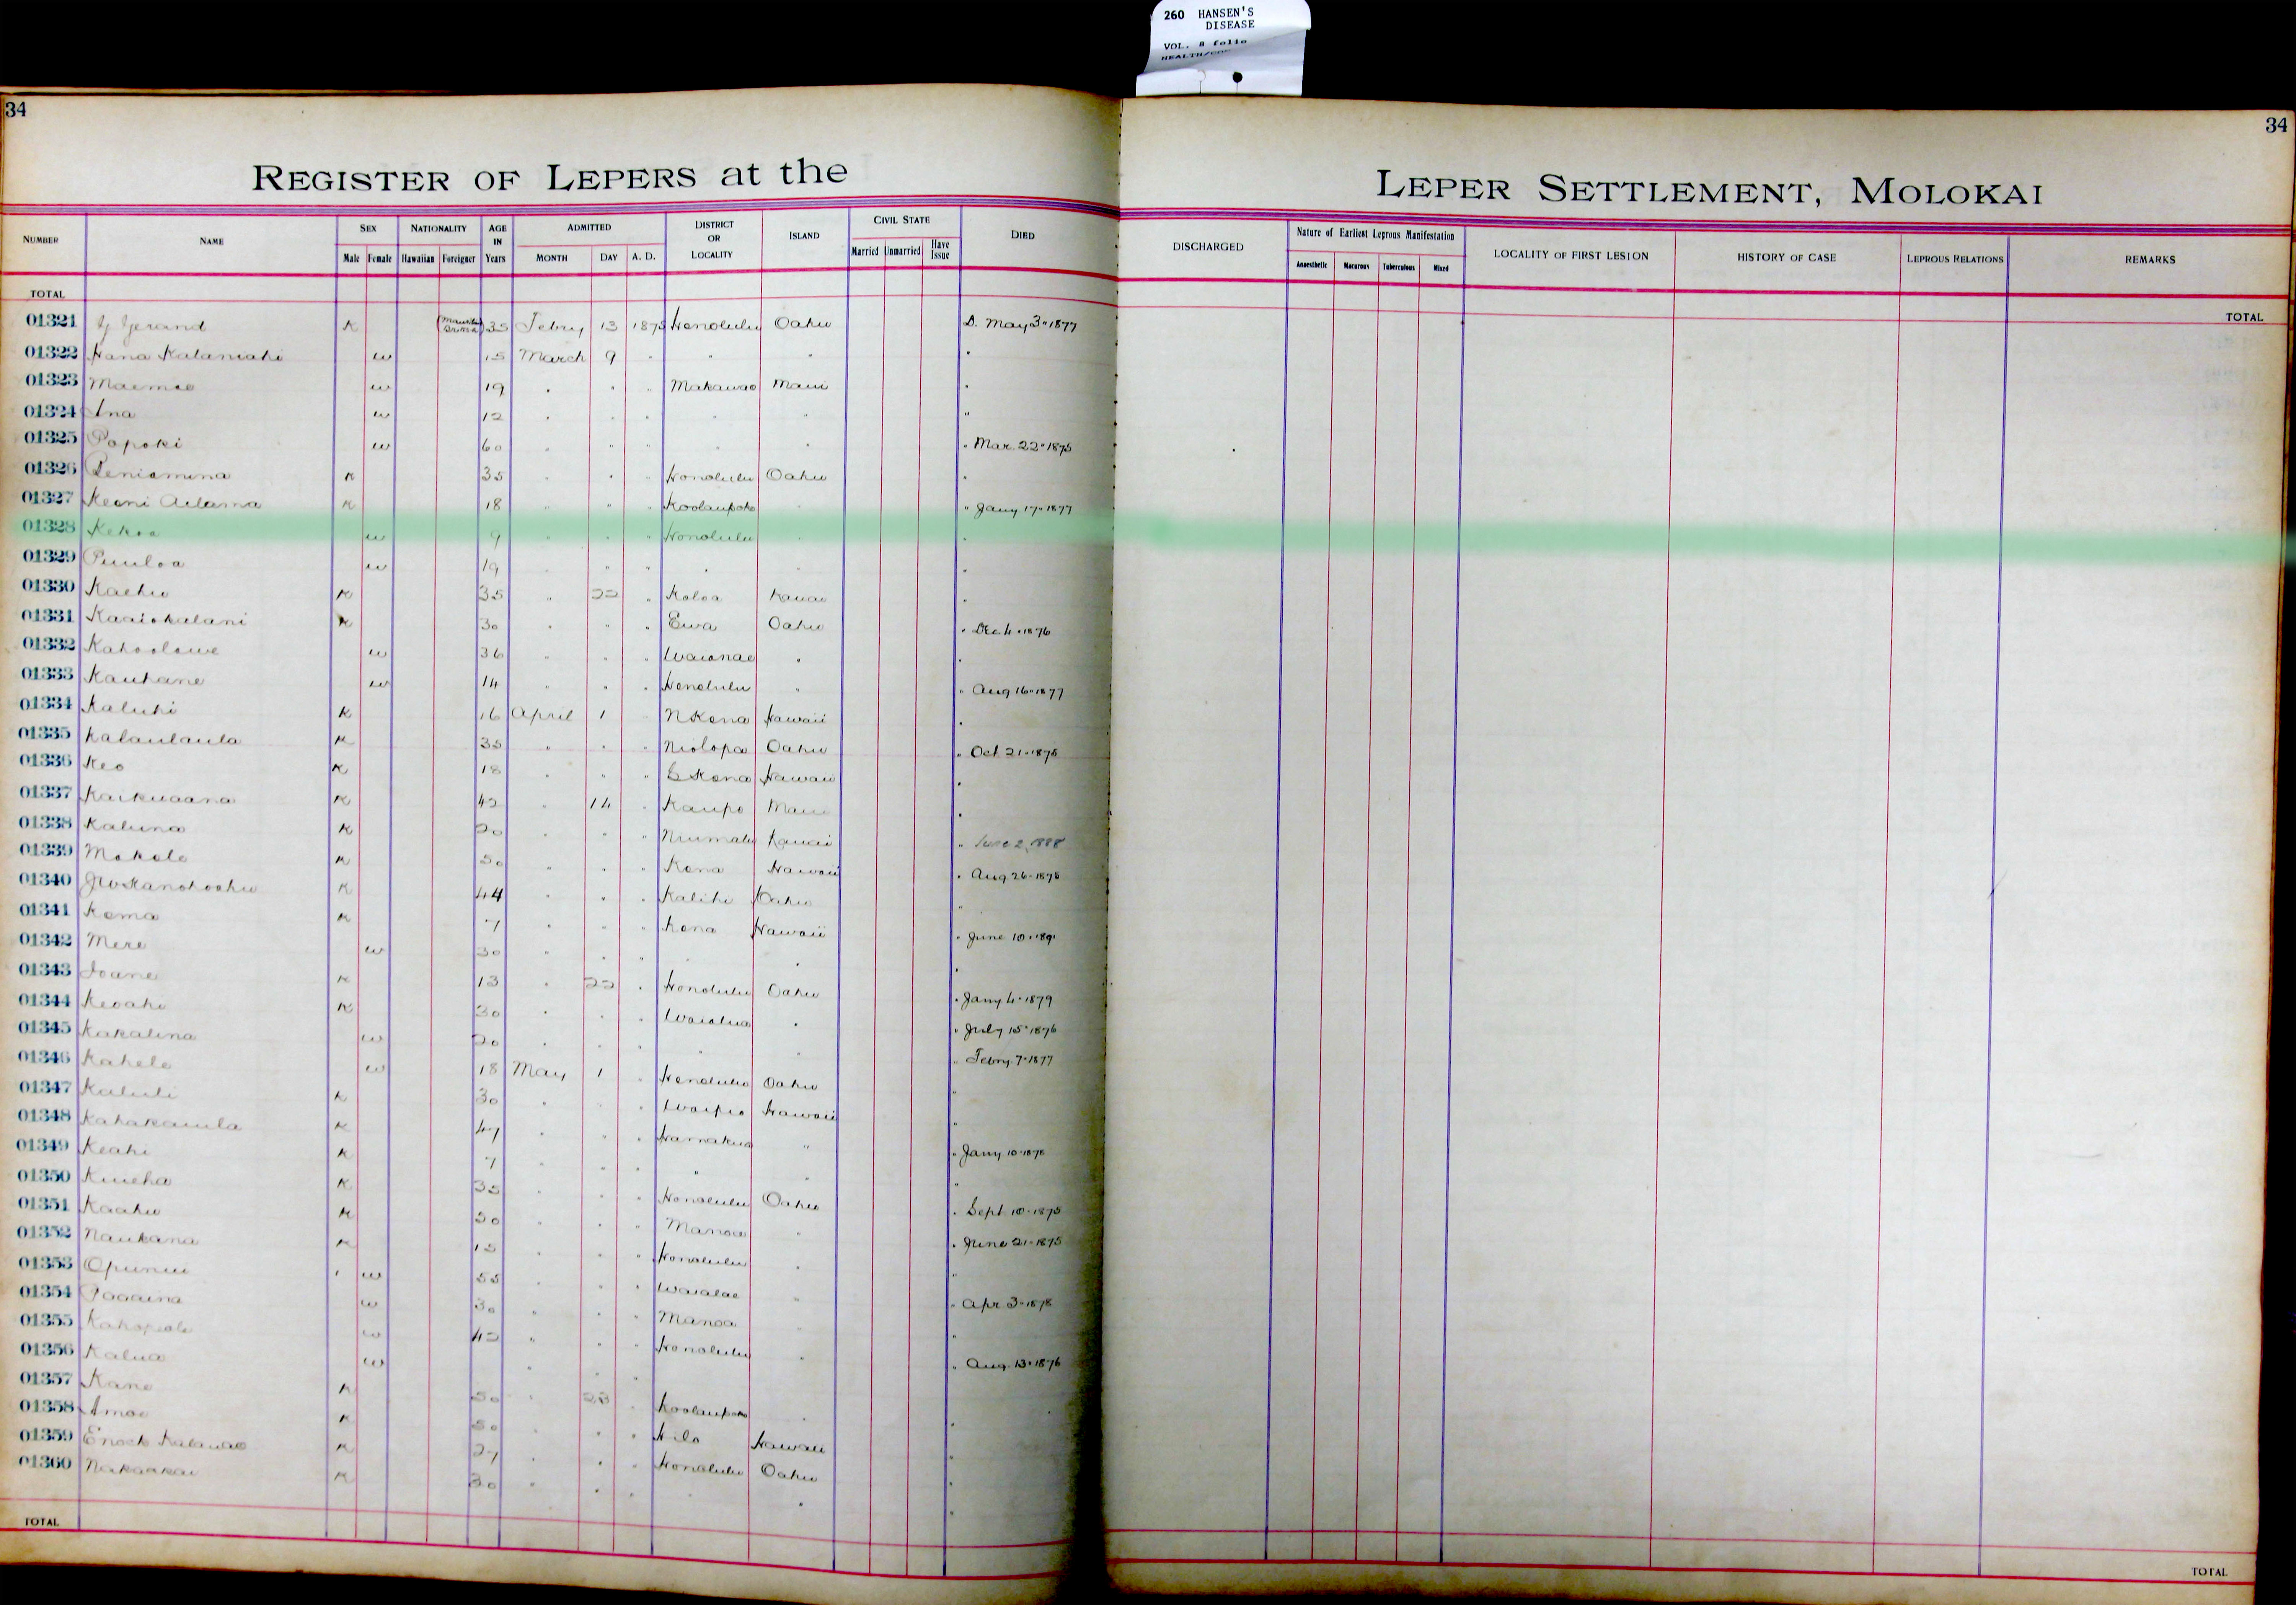 260 HANSEN'S
DISEASE
VOL. 8 folio
34
34
REGISTER OF LEPERS at the
LEPER SETTLEMENT, MOLOKAI
NUMBER NAME SEX NATIONALITY AGE IN Years ADMITTED DISTRICT OR LOCALITY ISLAND CIVIL STATE DIED
Male Female Hawaiian Foreigner MONTH DAY A. D. Married Unmarried Have Issue
DISCHARGED Nature of Earliest Leprous Manifestation LOCALITY OF FIRST LESION HISTORY OF CASE LEPROUS RELATIONS REMARKS
Anaesthetic Macurous Tuberculous Mixed
TOTAL
TOTAL
01321 Gerand K 35 Febry 13 1875 Honolulu Oahu D. May 3 " 1877
01322 Hana Kalaniahi w 15 March 9 " " " "
01323 Maemae w 19 " " " Makawao Maui "
01324 Ina w 12 " " " " " "
01325 Popoki w 60 " " " " " " Mar. 22 " 1875
01326 Peniamina K 35 " " " Honolulu Oahu "
01327 Keoni Ailama K 18 " " " Koolaupoko " " Jany 17 " 1877
01328 Kekoa w 9 " " " Honolulu " "
01329 Puuloa w 19 " " " " " "
01330 Kaehu K 35 " 22 " Koloa Kauai "
01331 Kaaiokalani K 30 " " " Ewa Oahu " Dec 4 " 1876
01332 Kahoolawe w 36 " " " Waianae " "
01333 Kauhane w 14 " " " Honolulu " " Aug 16 " 1877
01334 Kaluhi K 16 April 1 " N Kona Hawaii "
01335 Kalaulaula K 35 " " " Niolopa Oahu " Oct 21 " 1875
01336 Keo K 18 " " " S Kona Hawaii "
01337 Kaikuaana K 42 " 14 " Kaupo Maui "
01338 Kaluna K 20 " " " Niumalu Kauai " June 2, 1888
01339 Makole K 50 " " " Kona Hawaii " Aug 26 " 1878
01340 JW Kanohoahu K 44 " " " Kalihi Oahu "
01341 Koma K 7 " " " Kona Hawaii " June 10 " 1891
01342 Mere w 30 " " " " " "
01343 Ioane K 13 " 22 " Honolulu Oahu " Jany 4 " 1879
01344 Keoahi K 30 " " " Waialua " " July 15 " 1876
01345 Kakalina w 20 " " " " " " Febry 7 " 1877
01346 Kahele w 18 May 1 " Honolulu Oahu "
01347 Kaluli K 30 " " " Waipio Hawaii "
01348 Kahakauila K 47 " " " Hamakua " " Jany 10 " 1878
01349 Keahi K 7 " " " " " "
01350 Kuieha K 35 " " " Honolulu Oahu " Sept 10 " 1875
01351 Kaahu K 50 " " " Manoa " " June 21 " 1875
01352 Naukana K 15 " " " Honolulu " "
01353 Opunui w 55 " " " Waialae " " Apr 3 " 1878
01354 Paaaina w 30 " " " Manoa " "
01355 w 42 " " " Honolulu " " Aug. 13 " 1876
01356 Kalua w " " "
01357 Kane K 50 " 28 " Koolaupoko " "
01358 Amoe K 50 " " " Hilo Hawaii "
01359 Enoch Kalauao K 27 " " " Honolulu Oahu "
01360 Nakaakai K 30 " " " " " "
TOTAL
TOTAL